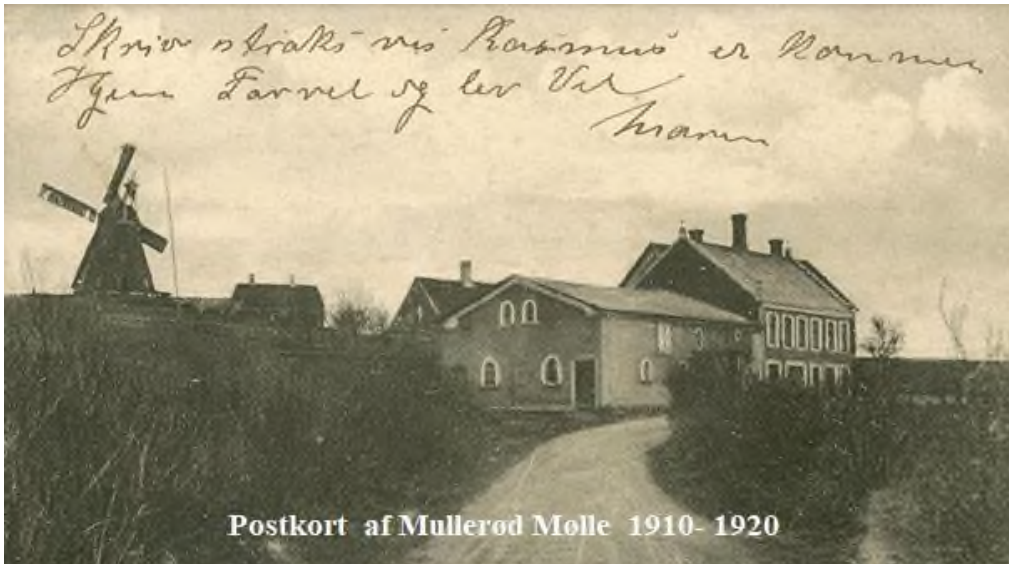 Skriv straks vis Rasmus er Kommen
Hjem Farvel og lev Vel
Maren
Postkort af Mullerød Mølle 1910- 1920